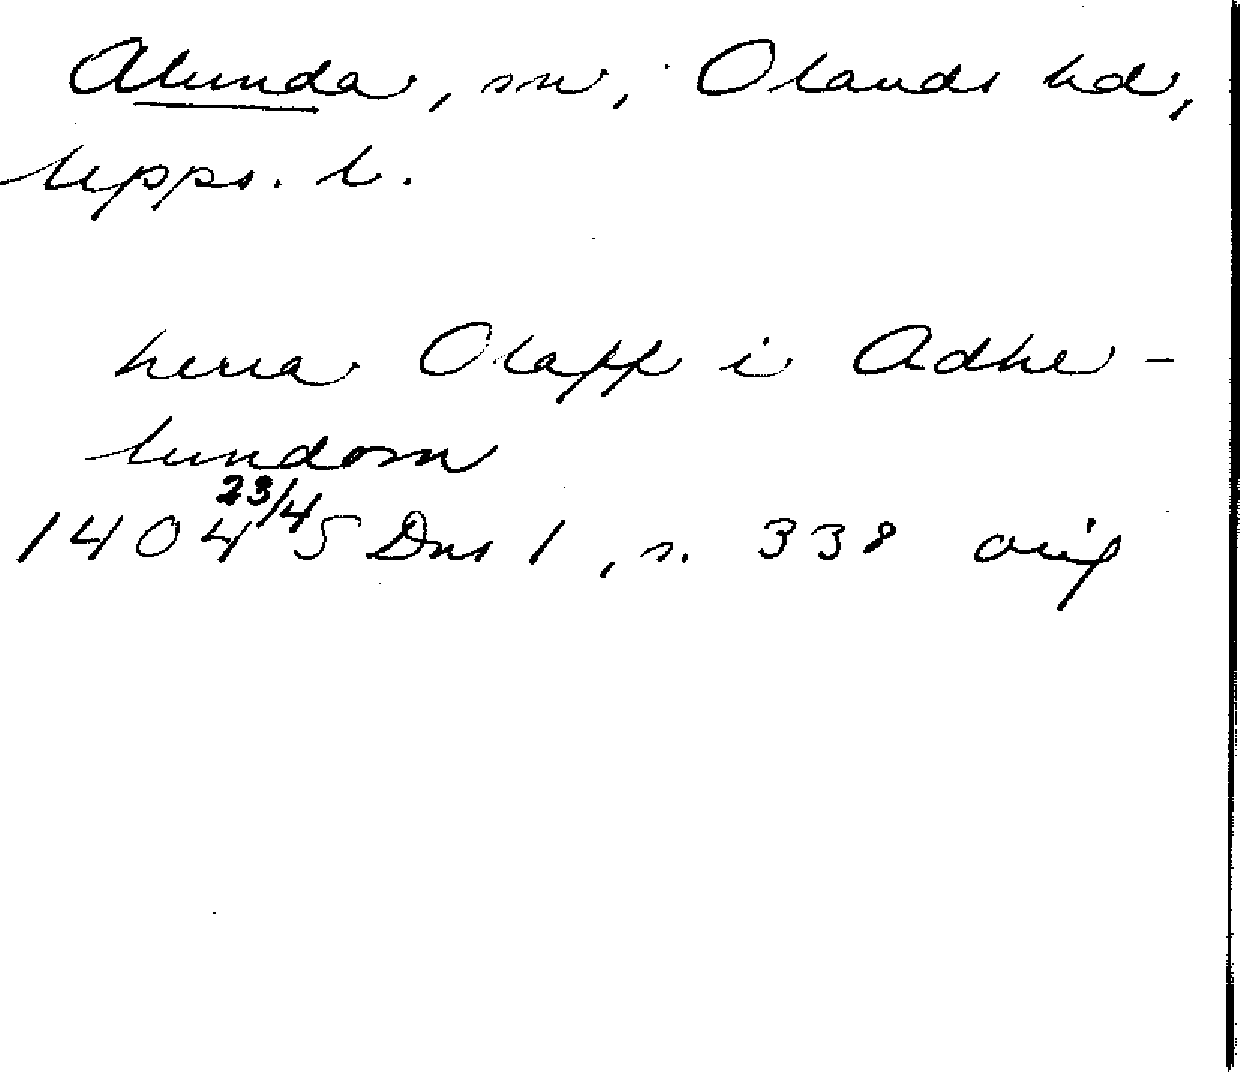 Alunda, sn, Olands hd,
Upps. l.
herra Olaff i Adhe-
lundom
1404 23/4 SDns 1, s. 338 orig